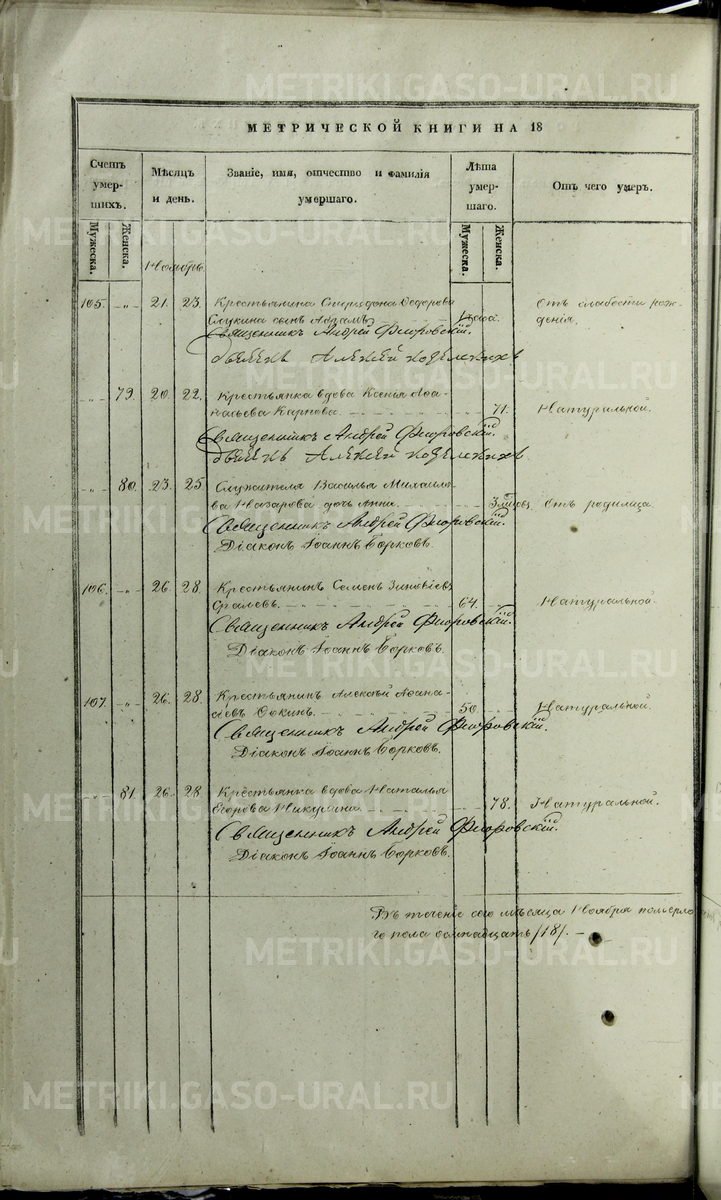 МЕТРИЧЕСКОЙ КНИГИ НА 18
Счетъ умер-шихъ.
Мѣсяцъ и день.
Званіе, имя, отчество и фамилія умершаго.
Лѣта умер-шаго.
Отъ чего умеръ.
Мужеска. Женска.
Мужеска. Женска.
Ноябрь
105. „ 21. 23. Крестьянина Спиридона Ѳедорова Отъ слабости рож-
сынъ денія.
Священникъ Андрей Флоровскій.
Алексѣй
„ 79. 20. 22. Крестьянка вдова Ксенья Аѳа-
насьева Карпова. 71. Натуральной.
Священникъ Андрей Флоровскій.
Алексѣй
„ 80. 23. 25. Служителя Василья Михайло-
ва Назарова дочь Анна. Отъ родимца.
Священникъ Андрей Флоровскій.
Діаконъ Іоаннъ Борковъ.
106. „ 26. 28. Крестьянинъ Семенъ Зиновіевъ
64. Натуральной.
Священникъ Андрей Флоровскій.
Діаконъ Іоаннъ Борковъ.
107. „ 26. 28. Крестьянинъ Алексѣй Аѳана-
сіевъ 50. Натуральной.
Священникъ Андрей Флоровскій.
Діаконъ Іоаннъ Борковъ.
81. 26. 28. Крестьянка вдова Наталья
Егорова Никулина. 78. Натуральной.
Священникъ Андрей Флоровскій.
Діаконъ Іоаннъ Борковъ.
Въ теченіе сего мѣсяца Ноября померло
го пола /18/.
METRIKI.GASO-URAL.RU